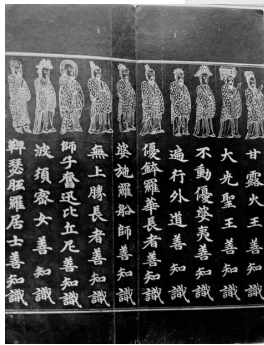 甘露火王善知識
大光聖王善知識
不動優婆夷善知識
遍行外道善知識
優鉢羅華長者善知識
婆施羅船師善知識
無上勝長者善知識
師子奮迅比丘尼善知識
波須密女善知識
鞞瑟胝羅居士善知識